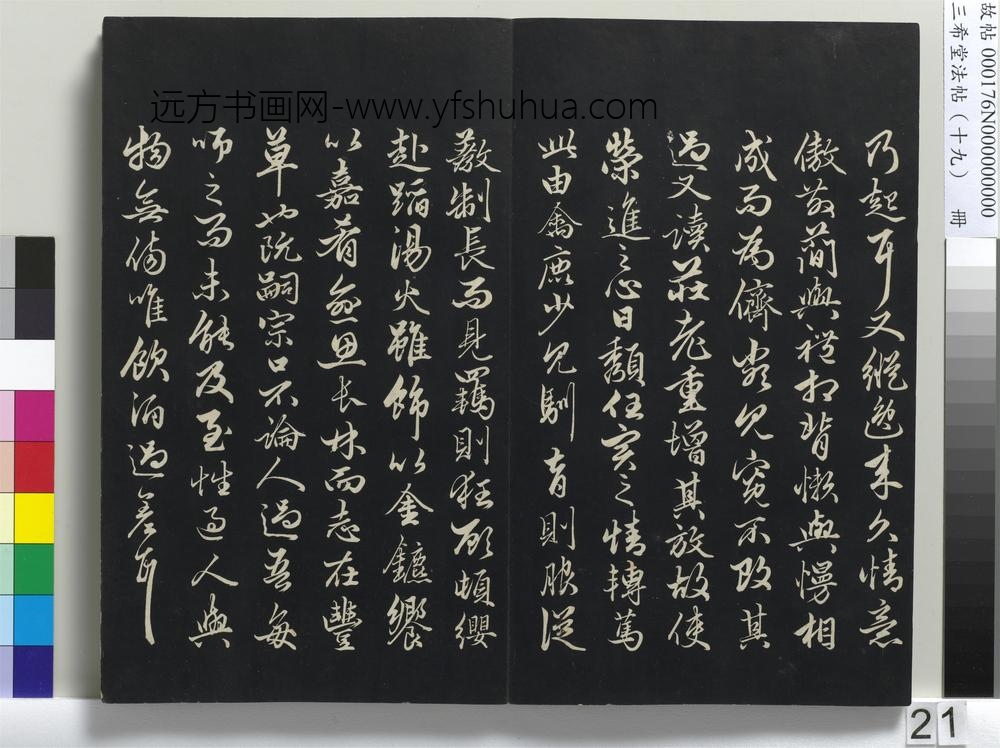 乃起耳又縱逸来久情意
傲散簡與禮相背懶與慢相
成而為儕類見寬不攻其
過又讀莊老重增其放故使
榮進之心日頹任實之情轉篤
此由禽鹿少見馴育則服從
教制長而見羈則狂顧頓纓
赴蹈湯火雖飾以金鑣饗
以嘉肴愈思長林而志在豐
草也阮嗣宗口不論人過吾每
師之而未能及至性過人與
物無傷唯飲酒過差耳
远方书画网-www.yfshuhua.com
故帖 000176N000000000
三希堂法帖（十九） 冊
21